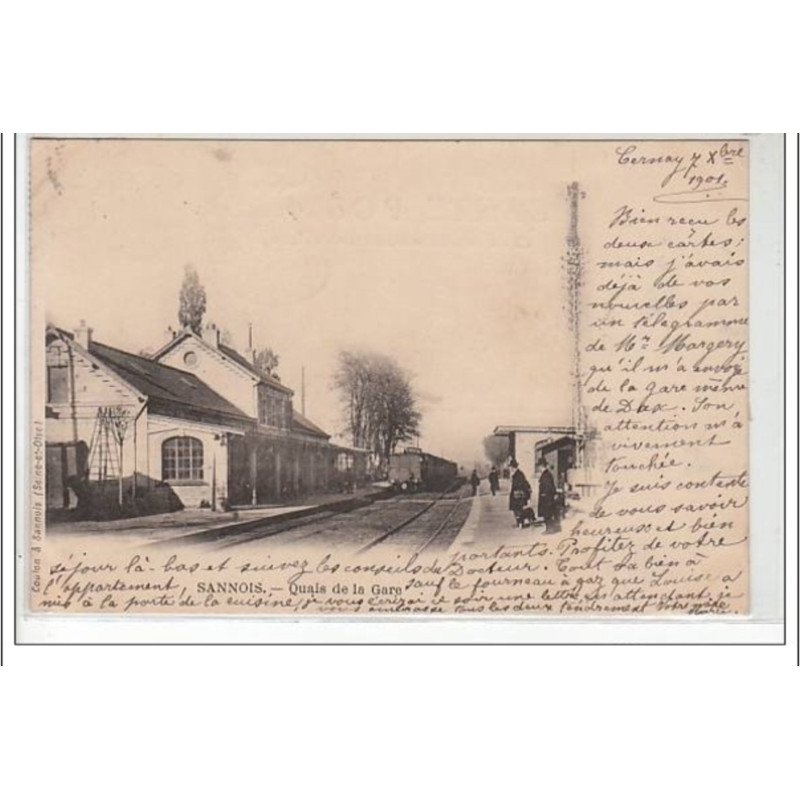 Cernay 7 Xbre
1901.
Bien reçu les
deux cartes;
mais j'avais
déjà de vos
nouvelles par
un télégramme
de Mr. Margery
qu'il m'a envoyé
de la gare même
de Dax. Son
attention m'a
vivement
touchée.
Je suis contente
de vous savoir
heureuse et bien
portants. Profitez de votre
séjour là-bas et suivez les conseils du Docteur. Tout va bien à
l'appartement, sauf le fourneau à gaz que Louise a
mis à la porte de la cuisine, je vous écrirai ce soir une lettre, en attendant, je
vous embrasse tous les deux tendrement votre mère
SANNOIS. — Quais de la Gare
Coulon à Sannois (Seine-et-Oise)